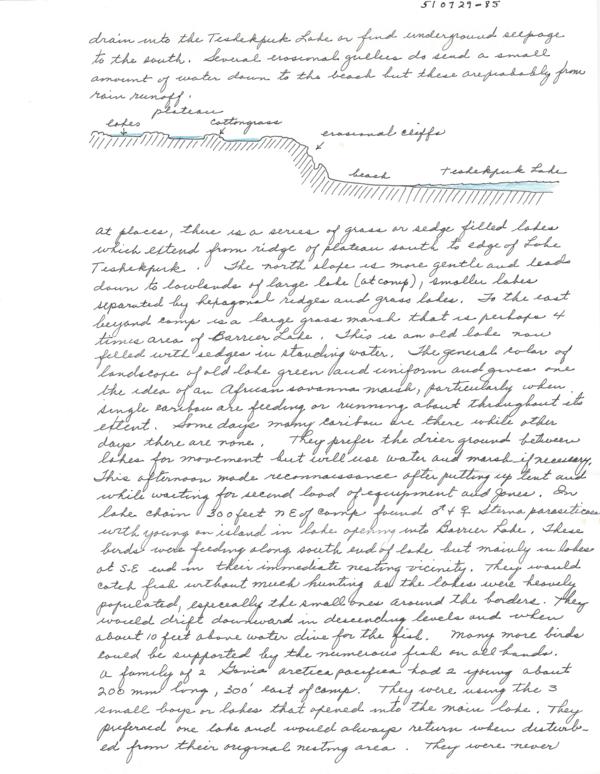 510729-85
drain into the Teshekpuk Lake or find underground seepage
to the south. Several erosional gullies do send a small
amount of water down to the beach but these are probably from
rain runoff.
plateau
lakes
cottongrass
erosional cliffs
beach
Teshekpuk Lake
At places, there is a series of grass or sedge filled lakes
which extend from ridge of plateau south to edge of Lake
Teshekpuk. The north slope is more gentle and leads
down to lowlands of large lake (at camp), smaller lakes
separated by hexagonal ridges and grass lakes. To the east
beyond camp is a large grass marsh that is perhaps 4
times area of Barrier Lake. This is an old lake now
filled with sedges in standing water. The general color of
landscape of old lake green and uniform and gives one
the idea of an African savanna marsh, particularly when
single caribou are feeding or running about throughout its
extent. Some days many caribou are there while other
days there are none. They prefer the drier ground between
lakes for movement but will use water and marsh if necessary.
This afternoon made reconnaissance after putting up tent and
while waiting for second load of equipment and Jones. In
lake chain 300 feet NE of camp found ♂ + ♀ Sterna parasiticae
with young on island in lake opening into Barrier Lake. These
birds were feeding along south end of lake but mainly in lakes
at S-E end in their immediate nesting vicinity. They would
catch fish without much hunting as the lakes were heavely
populated, especially the small ones around the borders. They
would drift downward in descending levels and when
about 10 feet above water dive for the fish. Many more birds
could be supported by the numerous fish on all hands.
A family of 2 Gavia arctica pacifica had 2 young about
200 mm long, 300' east of camp. They were using the 3
small bays or lakes that opened into the main lake. They
preferred one lake and would always return when disturb-
ed from their original nesting area. They were never